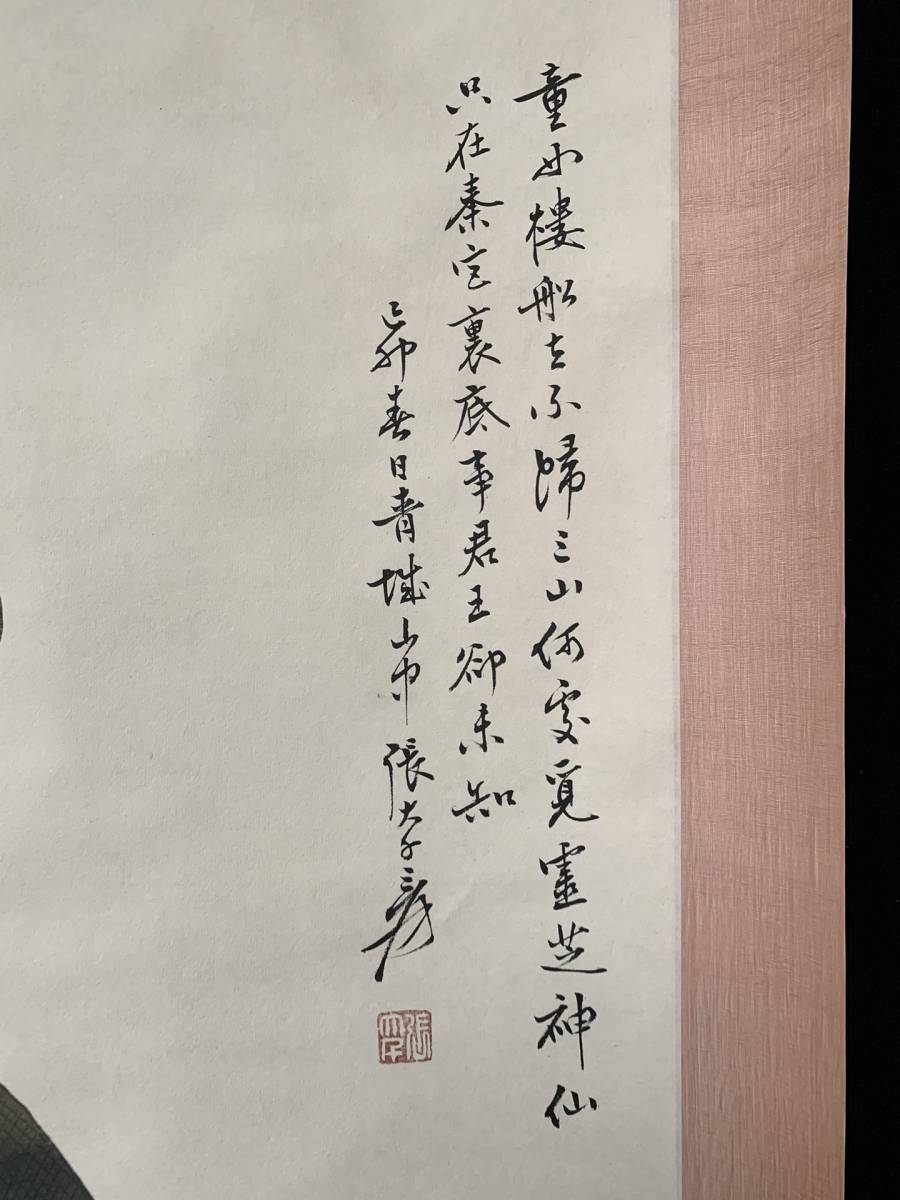 童女樓船去不歸三山何處覓靈芝神仙
只在秦宮裏底事君王卻未知
己卯春日青城山中張大千爰
張大千